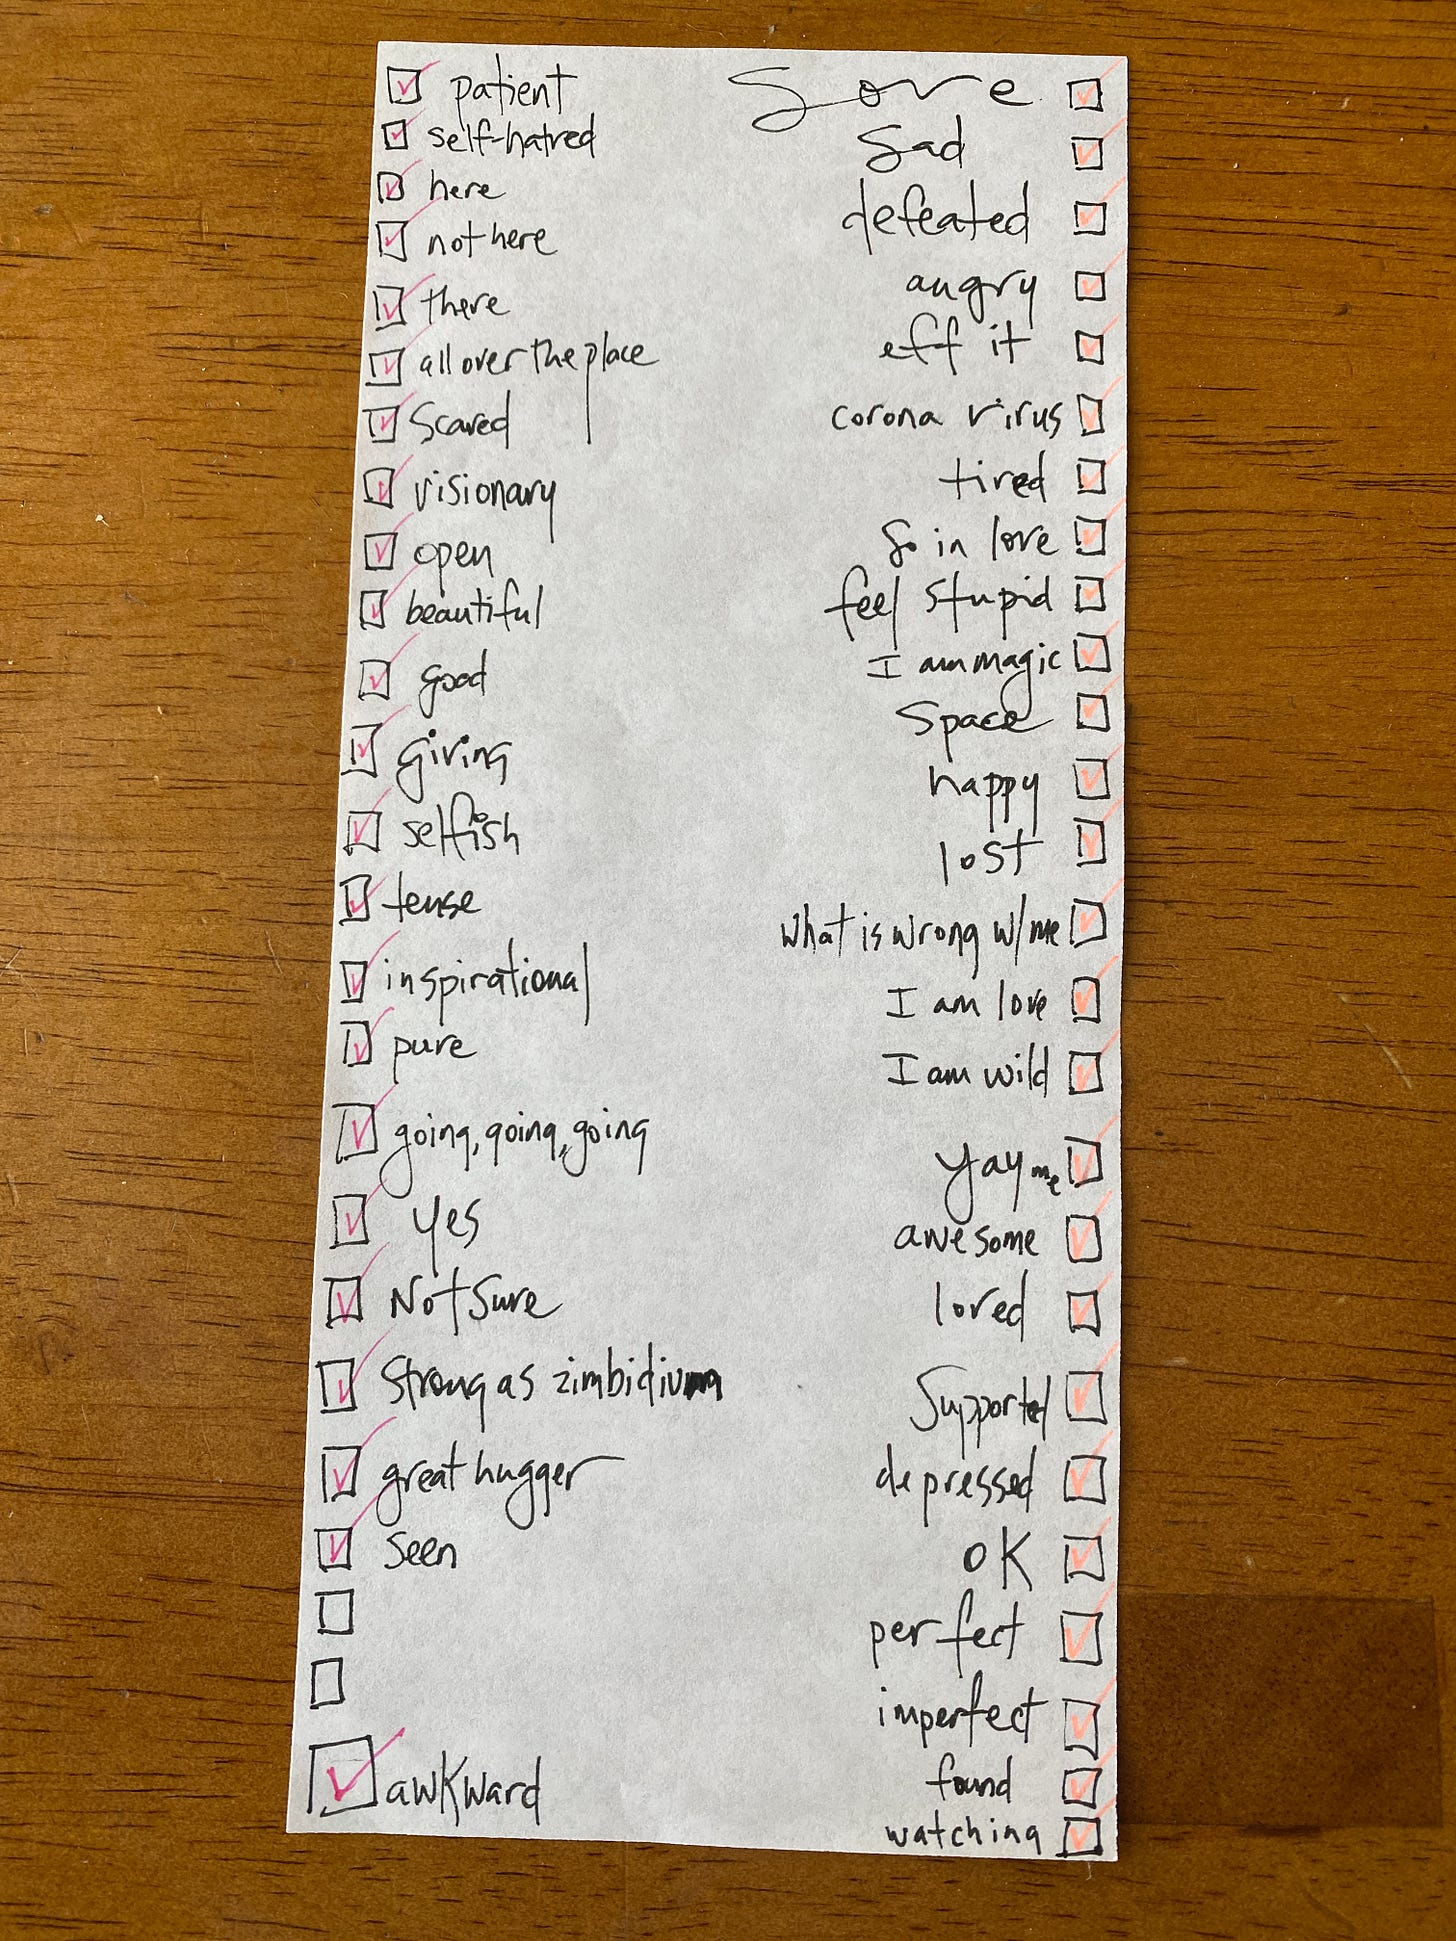 patient
self-hatred
here
not here
there
all over the place
Scared
visionary
open
beautiful
good
giving
selfish
tense
inspirational
pure
going, going, going
yes
Not Sure
Strong as zimbidium
great hugger
Seen
awkward
Sore
Sad
defeated
angry
eff it
corona virus
tired
So in love
feel stupid
I am magic
Space
happy
lost
what is wrong w/me
I am love
I am wild
yay me
awesome
loved
Supported
depressed
OK
perfect
imperfect
found
watching